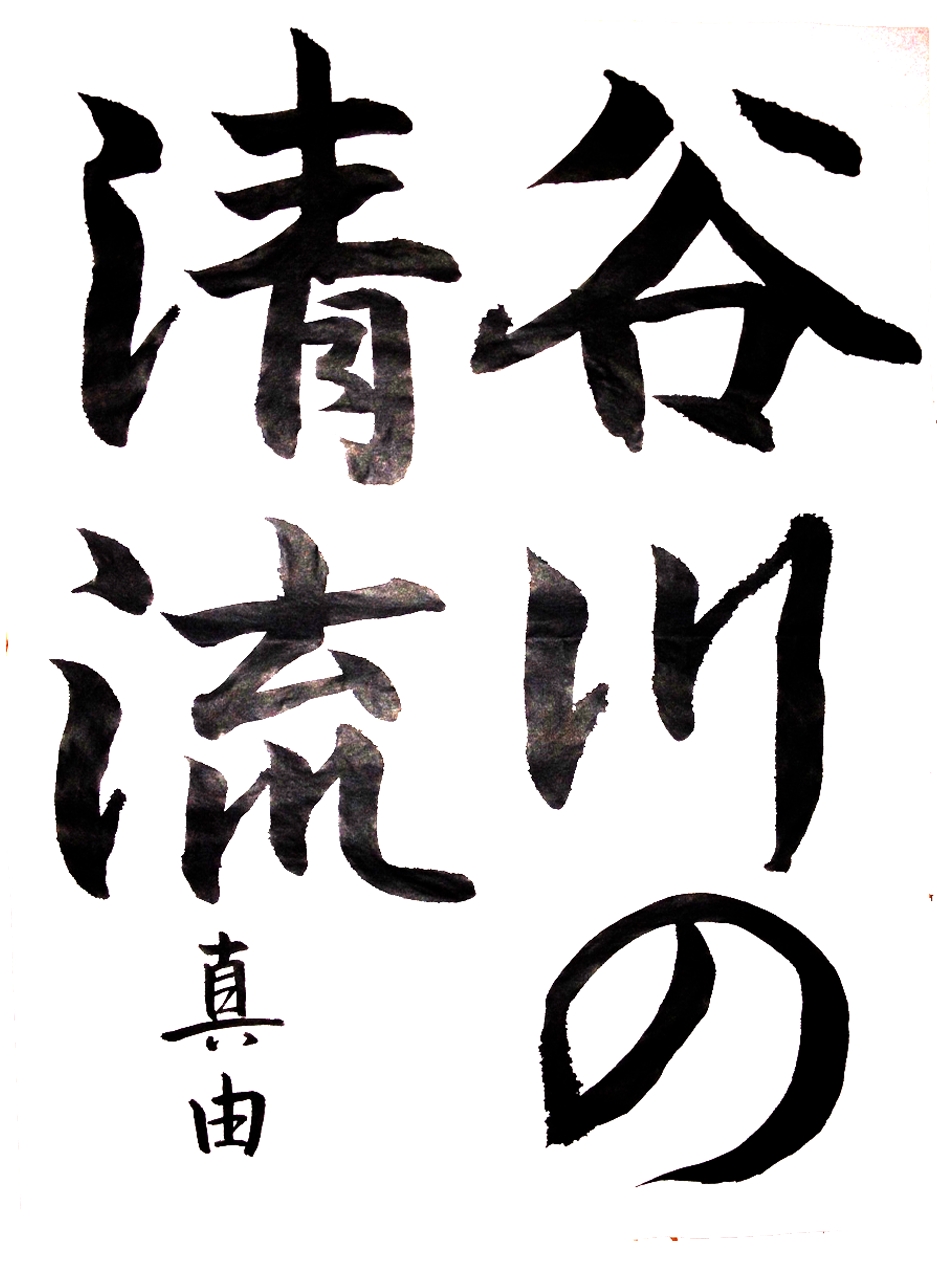 谷川の
清流
真由